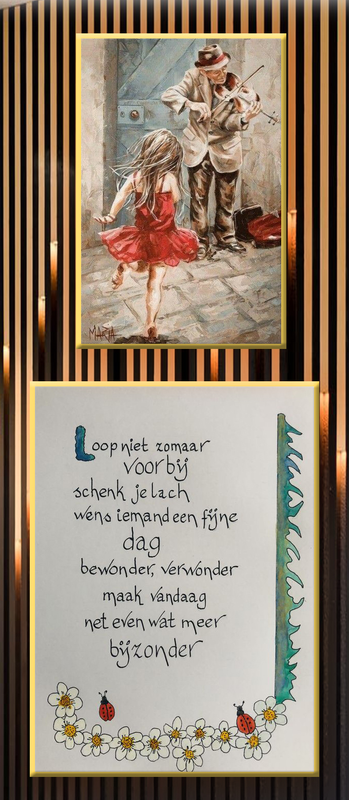 MARTA
Loop niet zomaar
voorbij
schenk je lach
wens iemand een fijne
dag
bewonder, verwonder
maak vandaag
net even wat meer
bijzonder